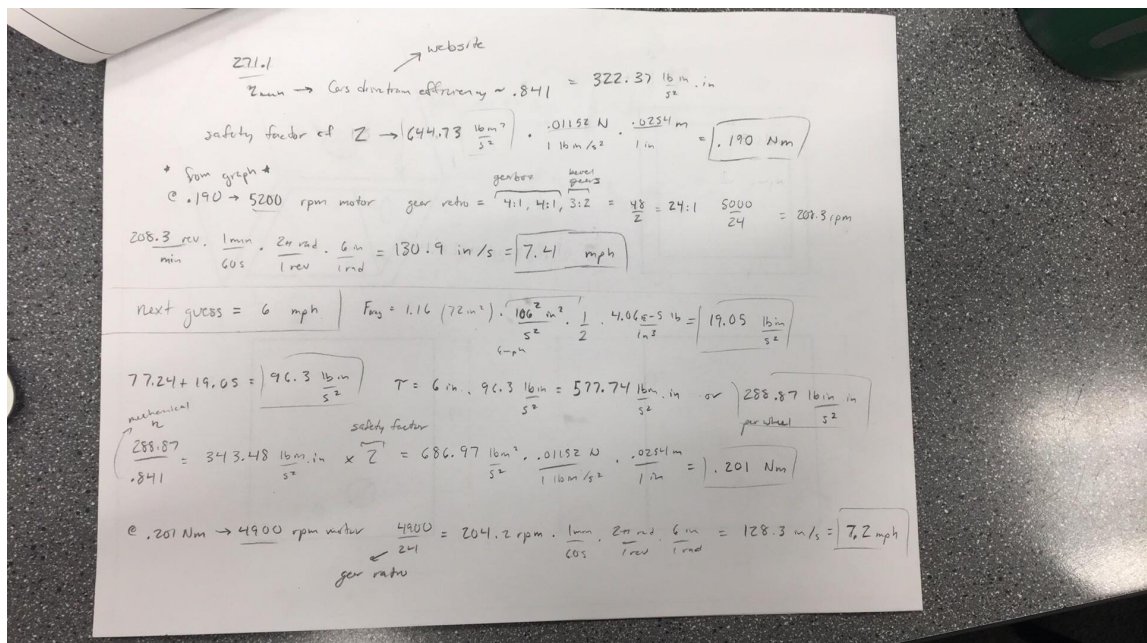 website
271.1 / η mech → Cars drivetrain efficiency ~ .841 = 322.37 lb in/s² . in
safety factor of 2 → 644.73 lbm²/s² . .01152 N / 1 lbm/s² . .0254 m / 1 in = .190 Nm
* from graph *
gearbox bevel gears
@ .190 → 5200 rpm motor gear ratio = 4:1, 4:1, 3:2 = 48/2 = 24:1 5000/24 = 208.3 rpm
208.3 rev/min . 1 min/60s . 2π rad/1 rev . 6 in/1 rad = 130.9 in/s = 7.41 mph
next guess = 6 mph Fdrag = 1.16 (72 in²) . 106² in²/s² . 1/2 . 4.06e-5 lb/in³ = 19.05 lbin/s²
6 mph
77.24 + 19.05 = 96.3 lb in/s² T = 6 in . 96.3 lb in/s² = 577.74 lbm/s² . in or 288.87 lb in/s² in
per wheel
mechanical η safety factor
288.87/.841 = 343.48 lbm.in/s² x 2 = 686.97 lbm²/s² . .01152 N / 1 lbm/s² . .0254 m / 1 in = .201 Nm
@ .201 Nm → 4900 rpm motor 4900/241 = 204.2 rpm . 1 min/60s . 2π rad/1 rev . 6 in/1 rad = 128.3 in/s = 7.2 mph
gear ratio